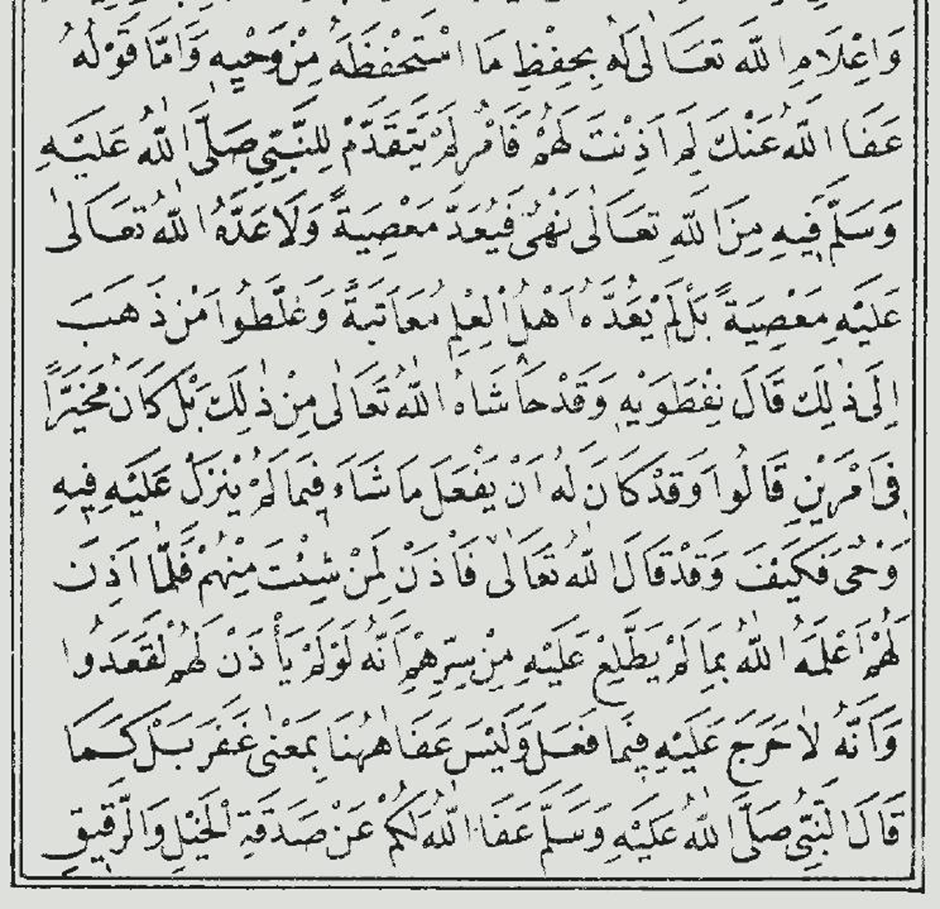 وَاِعْلَامِ اللّٰهِ تَعَالٰى لَهُ بِحِفْظِ مَا اسْتَحْفَظَهُ مِنْ وَحْيِهِ وَاَمَّا قَوْلُهُ
عَفَا اللّٰهُ عَنْكَ لِمَ اَذِنْتَ لَهُمْ فَاَمْرٌ لَمْ يَتَقَدَّمْ لِلنَّبِيِّ صَلَّى اللّٰهُ عَلَيْهِ
وَسَلَّمَ فِيهِ مِنَ اللّٰهِ تَعَالٰى نَهْىٌ فَيُعَدَّ مَعْصِيَةً وَلَا عَدَّهُ اللّٰهُ تَعَالٰى
عَلَيْهِ مَعْصِيَةً بَلْ لَمْ يَعُدَّهُ اَهْلُ الْعِلْمِ مُعَاتَبَةً وَغَلَّطُوا مَنْ ذَهَبَ
اِلٰى ذٰلِكَ قَالَ نِفْطَوَيْهِ وَقَدْ حَاشَاهُ اللّٰهُ تَعَالٰى مِنْ ذٰلِكَ بَلْ كَانَ مُخَيَّرًا
فِى اَمْرَيْنِ قَالُوا وَقَدْ كَانَ لَهُ اَنْ يَفْعَلَ مَا شَاءَ فِيمَا لَمْ يُنْزَلْ عَلَيْهِ فِيهِ
وَحْىٌ فَكَيْفَ وَقَدْ قَالَ اللّٰهُ تَعَالٰى فَأْذَنْ لِمَنْ شِئْتَ مِنْهُمْ فَلَمَّا اَذِنَ
لَهُمْ اَعْلَمَهُ اللّٰهُ بِمَا لَمْ يَطَّلِعْ عَلَيْهِ مِنْ سِرِّهِمْ اَنَّهُ لَوْ لَمْ يَأْذَنْ لَهُمْ لَقَعَدُوا
وَاَنَّهُ لَا حَرَجَ عَلَيْهِ فِيمَا فَعَلَ وَلَيْسَ عَفَا هٰهُنَا بِمَعْنٰى غَفَرَ بَلْ كَمَا
قَالَ النَّبِىُّ صَلَّى اللّٰهُ عَلَيْهِ وَسَلَّمَ عَفَا اللّٰهُ لَكُمْ عَنْ صَدَقَةِ الْخَيْلِ وَالرَّقِيقِ